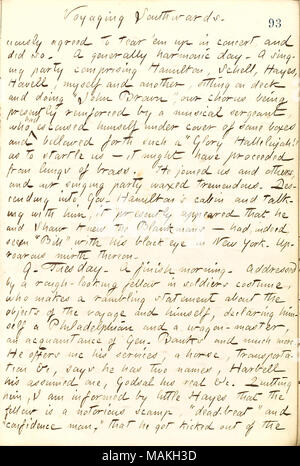 Voyaging Southwards.
93
mously agreed to tear 'em up in concert and
did so. A generally harmonic day. A sing-
ing party comprising Hamilton, Schell, Hayes
Havell, myself and another, sitting on deck
and doing "John Brown", our chorus being
presently reinforced by a musical sergeant
who ensconced himself under cover of some boxes
and bellowed forth such a "Glory Hallelujah!"
as to startle us — it might have proceeded
from lungs of brass. He joined us and others
and our singing party waxed tremendous. Des-
cending into Gen. Hamilton's cabin and talk-
ing with him, it presently appeared that he
and Shaw knew the — had, indeed
seen "Bill" with his black eye in New York. Up-
roarous mirth thereon.
9. Tuesday. A finish morning. Addressed
by a rough-looking fellow in soldiers costume,
who makes a rambling statement about the
objects of the voyage and himself, declaring him-
self a Philadelphian and a wagon-master,
an acquaintance of Gen. Banks' and much more.
He offers me his services, a horse, transporta-
tion &c, says he has two names, Harbell
his assumed one, Godsal his real &c. Quitting
him, I am informed by little Hayes that the
fellow is a notorious scamp, "dead-beat" and
"confidence man," that he got kicked out of the
MAKH3D
alamy
www.alamy.com